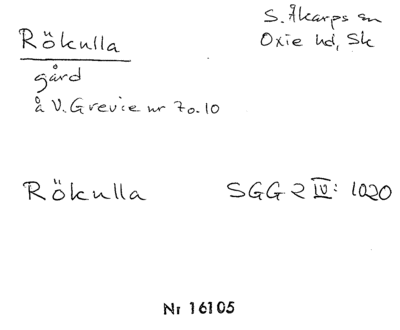 Rökulla
S. Åkarps sn
Oxie hd, Sk
gård
å V. Grevie nr 7o.10
Rökulla SGG 2 IV: 1020
Nr 16105